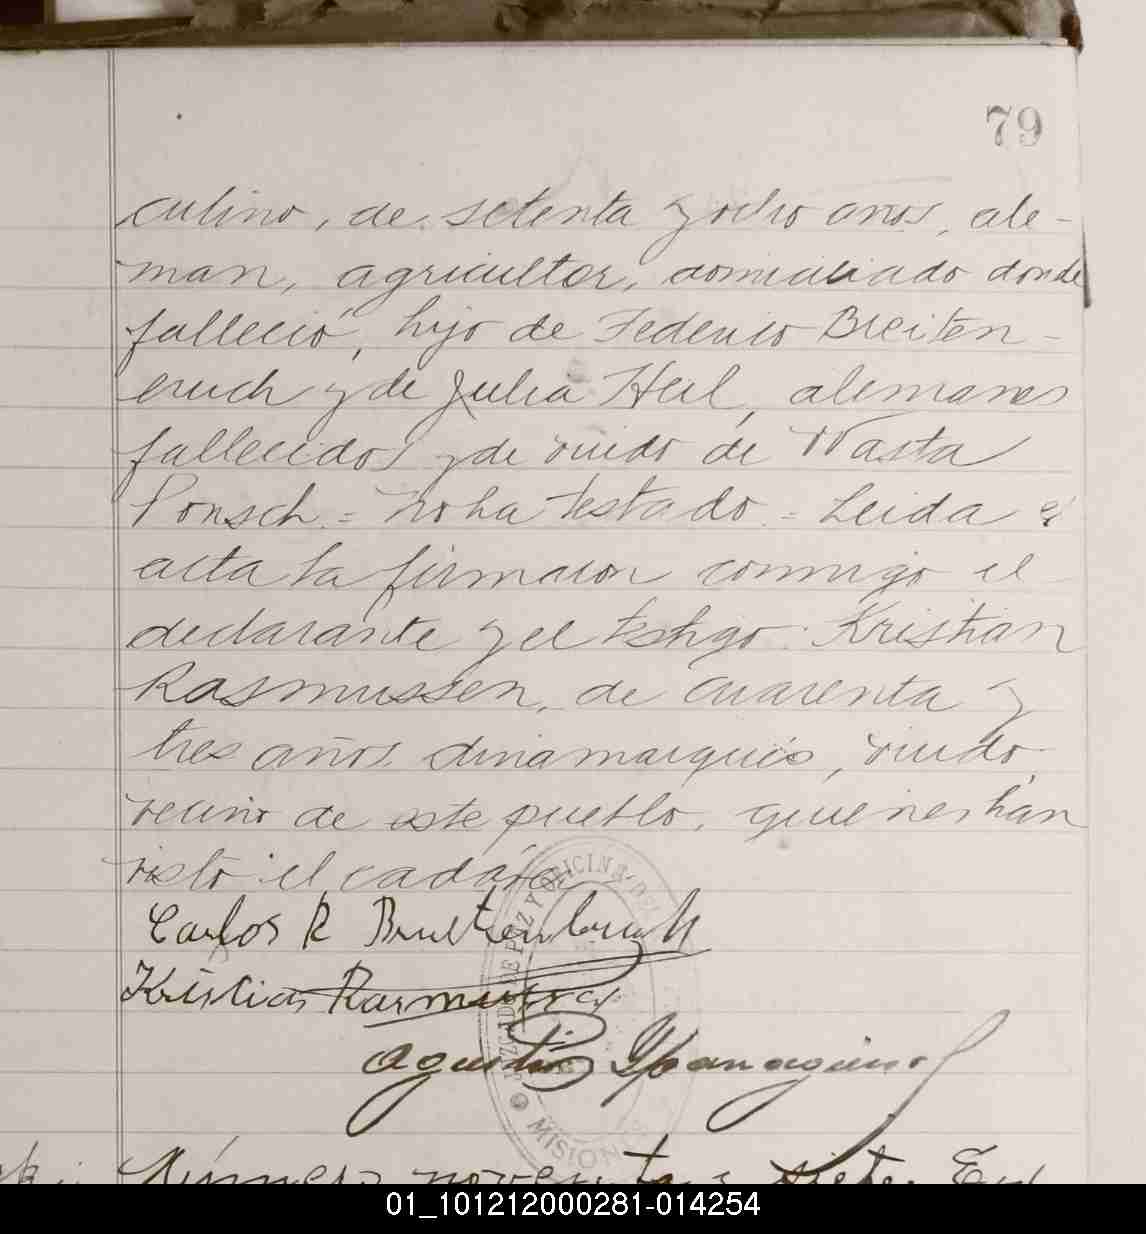 79
culino, de setenta y ocho años, ale-
man, agricultor, domiciliado donde
fallecio, hijo de Federico Breiten-
eruch y de Julia Heil, alemanes
fallecidos y de viudo de Wasta
Ponsch. = No ha testado. = Leida el
acta la firmaron conmigo el
declarante y el testigo: Kristian
Rasmussen, de cuarenta y
tres años, dinamarqués, viudo,
vecino de este pueblo, quienes han
visto el cadáver
Carlos R
Kristian Rasmussen
Agustin
JUZGADO DE PAZ Y OFICINA DEL
MISIONES
Número noventa y siete. En
01_101212000281-014254